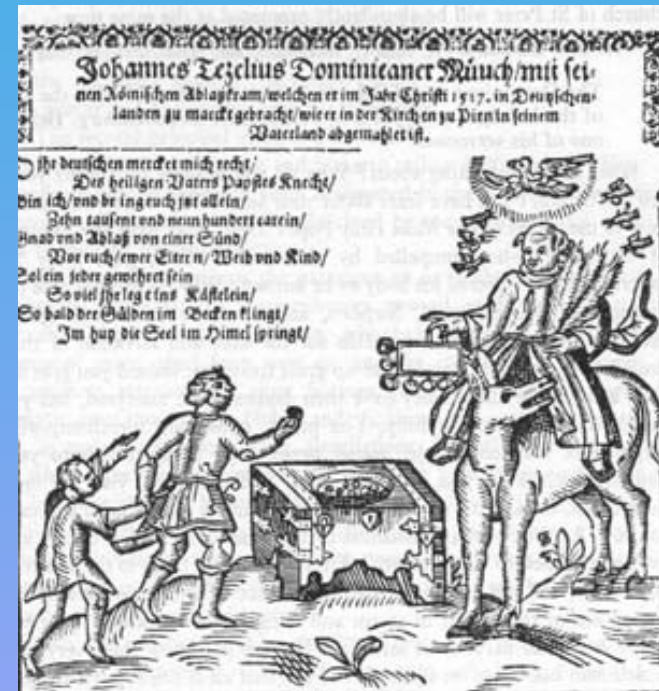 Johannes Tezelius Dominicaner Münch/mit sei-
nen Römischen Ablaßkram/welchen er im Jahr Christi 1517. in Deutschen-
landen zu marckt gebracht/wie er in der Kirchen zu Pirn in seinem
Vaterland abgemahlet ist.
O ihr deutschen mercket mich recht/
Des heiligen Vaters Papstes Knecht/
Bin ich/vnd bring euch jtzt allein/
Zehn tausent vnd neun hundert carein/
Gnad vnd Ablaß von einer Sünd/
Vor euch/ewer Eltern/Weib vnd Kind/
Sol ein jeder gewehret sein
So viel jhr legt ins Kästelein/
So bald der Gülden im Becken klingt/
Im huy die Seel im Himel springt/